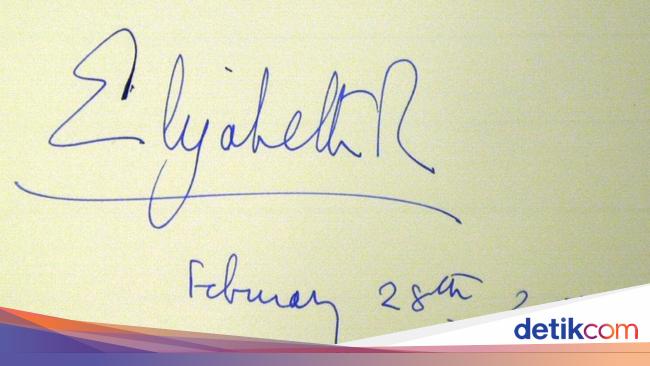 Elizabeth R
February 28th
detikcom